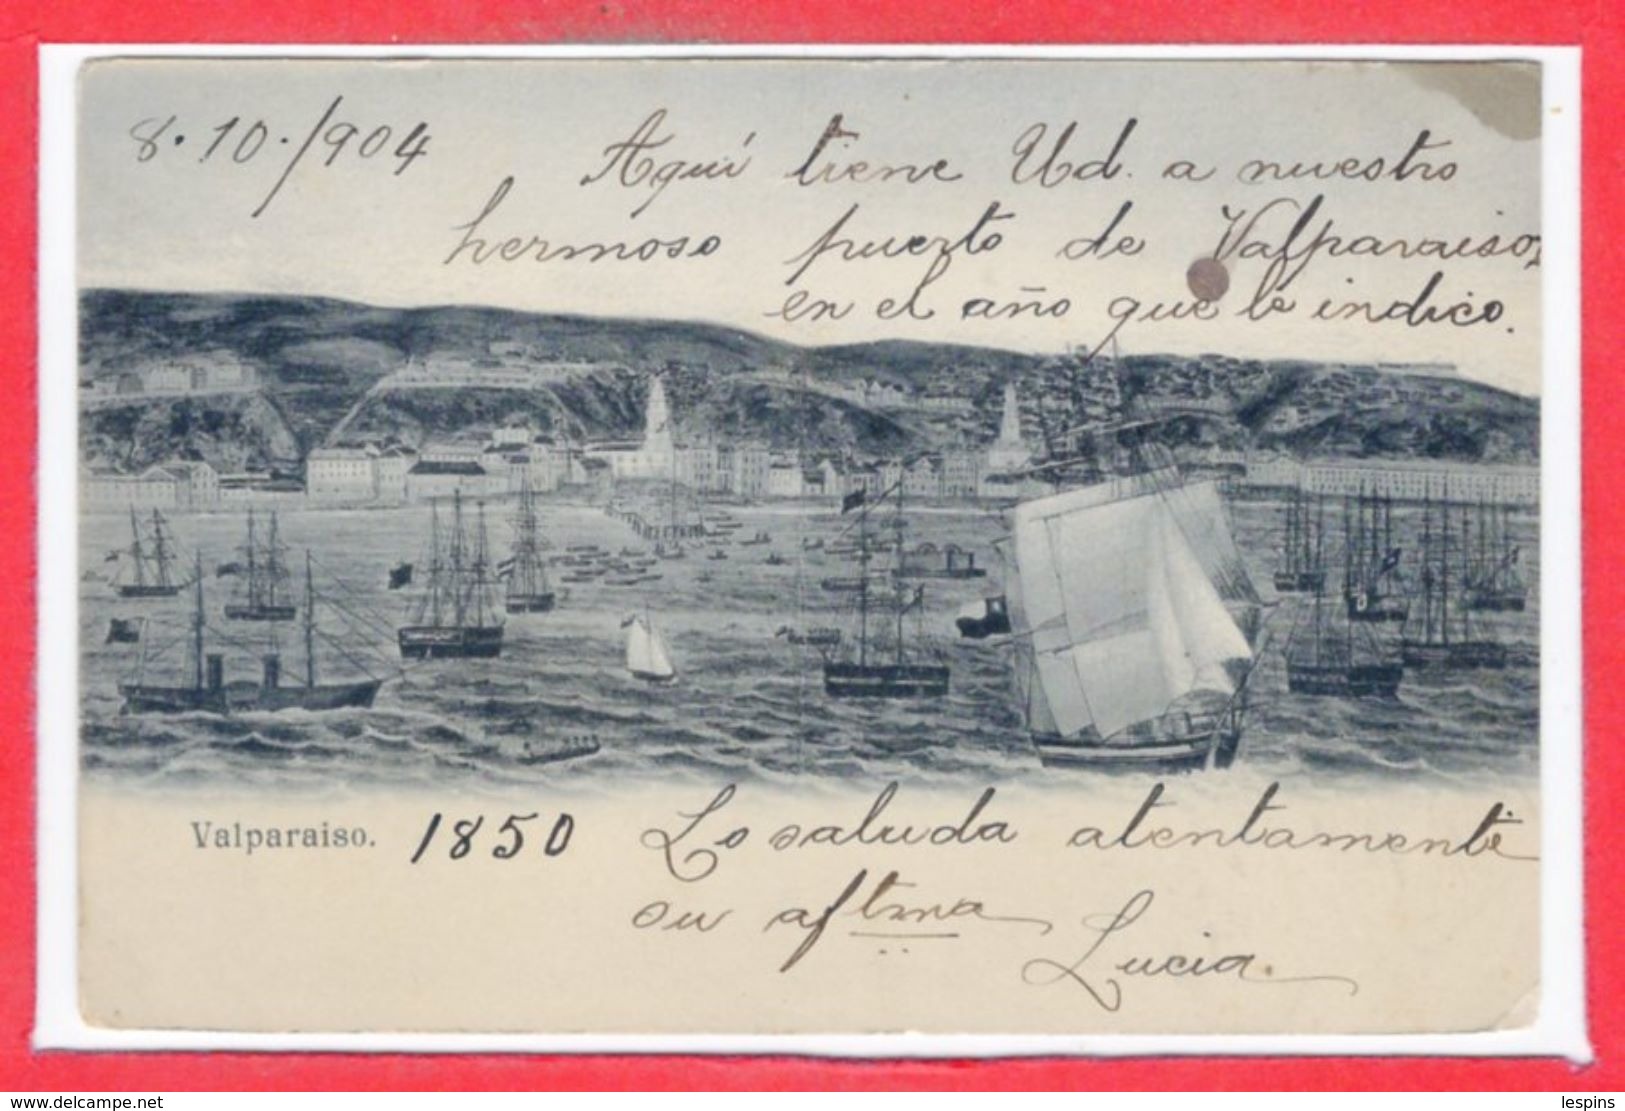 8.10./904
Aquí tiene Ud. a nuestro
hermoso puerto de Valparaiso,
en el año que le indico.
Valparaiso. 1850
Lo saluda atentamente
su aftma
Lucia.
www.delcampe.net
lespins